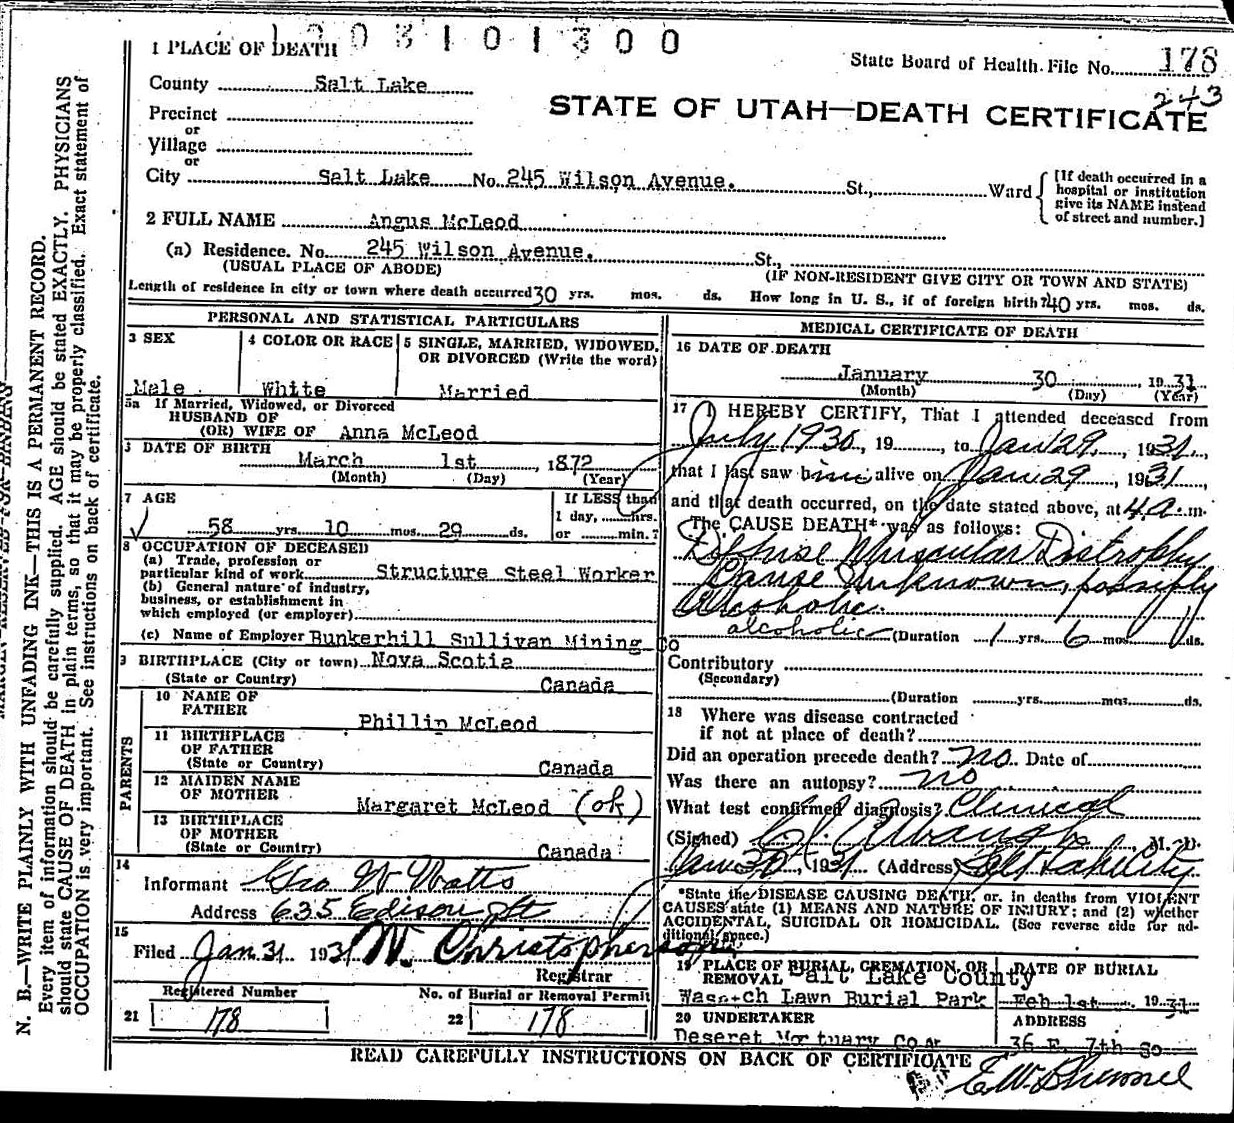 1 2 0 3 1 0 1 3 0 0
1 PLACE OF DEATH
State Board of Health File No. 178
243
County Salt Lake
STATE OF UTAH—DEATH CERTIFICATE
Precinct
or
Village
or
City Salt Lake No. 245 Wilson Avenue. St., Ward
[If death occurred in a
hospital or institution
give its NAME instead
of street and number.]
2 FULL NAME Angus McLeod
(a) Residence. No. 245 Wilson Avenue. St.,
(USUAL PLACE OF ABODE) (IF NON-RESIDENT GIVE CITY OR TOWN AND STATE)
Length of residence in city or town where death occurred 30 yrs. mos. ds. How long in U. S., if of foreign birth? 40 yrs. mos. ds.
PERSONAL AND STATISTICAL PARTICULARS
3 SEX
Male
4 COLOR OR RACE
White
5 SINGLE, MARRIED, WIDOWED,
OR DIVORCED (Write the word)
Married
5a If Married, Widowed, or Divorced
HUSBAND OF
(OR) WIFE OF Anna McLeod
6 DATE OF BIRTH
March 1st 1872
(Month) (Day) (Year)
7 AGE
58 yrs. 10 mos. 29 ds.
If LESS than
1 day, hrs.
or min.?
8 OCCUPATION OF DECEASED
(a) Trade, profession or
particular kind of work Structure Steel Worker
(b) General nature of industry,
business, or establishment in
which employed (or employer)
(c) Name of Employer Bunkerhill Sullivan Mining Co
9 BIRTHPLACE (City or town) Nova Scotia
(State or Country) Canada
PARENTS
10 NAME OF
FATHER
Phillip McLeod
11 BIRTHPLACE
OF FATHER
(State or Country) Canada
12 MAIDEN NAME
OF MOTHER
Margaret McLeod (ok)
13 BIRTHPLACE
OF MOTHER
(State or Country) Canada
14
Informant Geo W Watts
Address 635 Edison St
15
Filed Jan 31 1931 N. Christopherson,
Registrar
Registered Number
21 178
No. of Burial or Removal Permit
22 178
MEDICAL CERTIFICATE OF DEATH
16 DATE OF DEATH
January 30, 1931
(Month) (Day) (Year)
17 I HEREBY CERTIFY, That I attended deceased from
July 1930, 19, to Jan 29, 1931,
that I last saw him alive on Jan 29, 1931,
and that death occurred, on the date stated above, at 4 a.m.
The CAUSE DEATH* was as follows:
Difuise Muscular Distrophy
Cause Unknown, possibly
Alcoholic.
alcoholic (Duration 1 yrs. 6 mos. ds.
Contributory
(Secondary)
(Duration yrs. mos. ds.
18 Where was disease contracted
if not at place of death?
Did an operation precede death? no. Date of
Was there an autopsy? no
What test confirmed diagnosis? Clinical
(Signed) Albaugh, M. D.
Jan 30, 1931 (Address Salt Lake City
*State the DISEASE CAUSING DEATH, or, in deaths from VIOLENT
CAUSES state (1) MEANS AND NATURE OF INJURY; and (2) whether
ACCIDENTAL, SUICIDAL OR HOMICIDAL. (See reverse side for ad-
ditional space.)
19 PLACE OF BURIAL, CREMATION, OR
REMOVAL Salt Lake County
Wasatch Lawn Burial Park
DATE OF BURIAL
Feb 1st 1931
20 UNDERTAKER
Deseret Mortuary Co.
ADDRESS
36 E. 7th So
READ CAREFULLY INSTRUCTIONS ON BACK OF CERTIFICATE
MARGIN RESERVED FOR BINDING
N. B.—WRITE PLAINLY WITH UNFADING INK—THIS IS A PERMANENT RECORD.
Every item of information should be carefully supplied. AGE should be stated EXACTLY. PHYSICIANS
should state CAUSE OF DEATH in plain terms, so that it may be properly classified. Exact statement of
OCCUPATION is very important. See instructions on back of certificate.